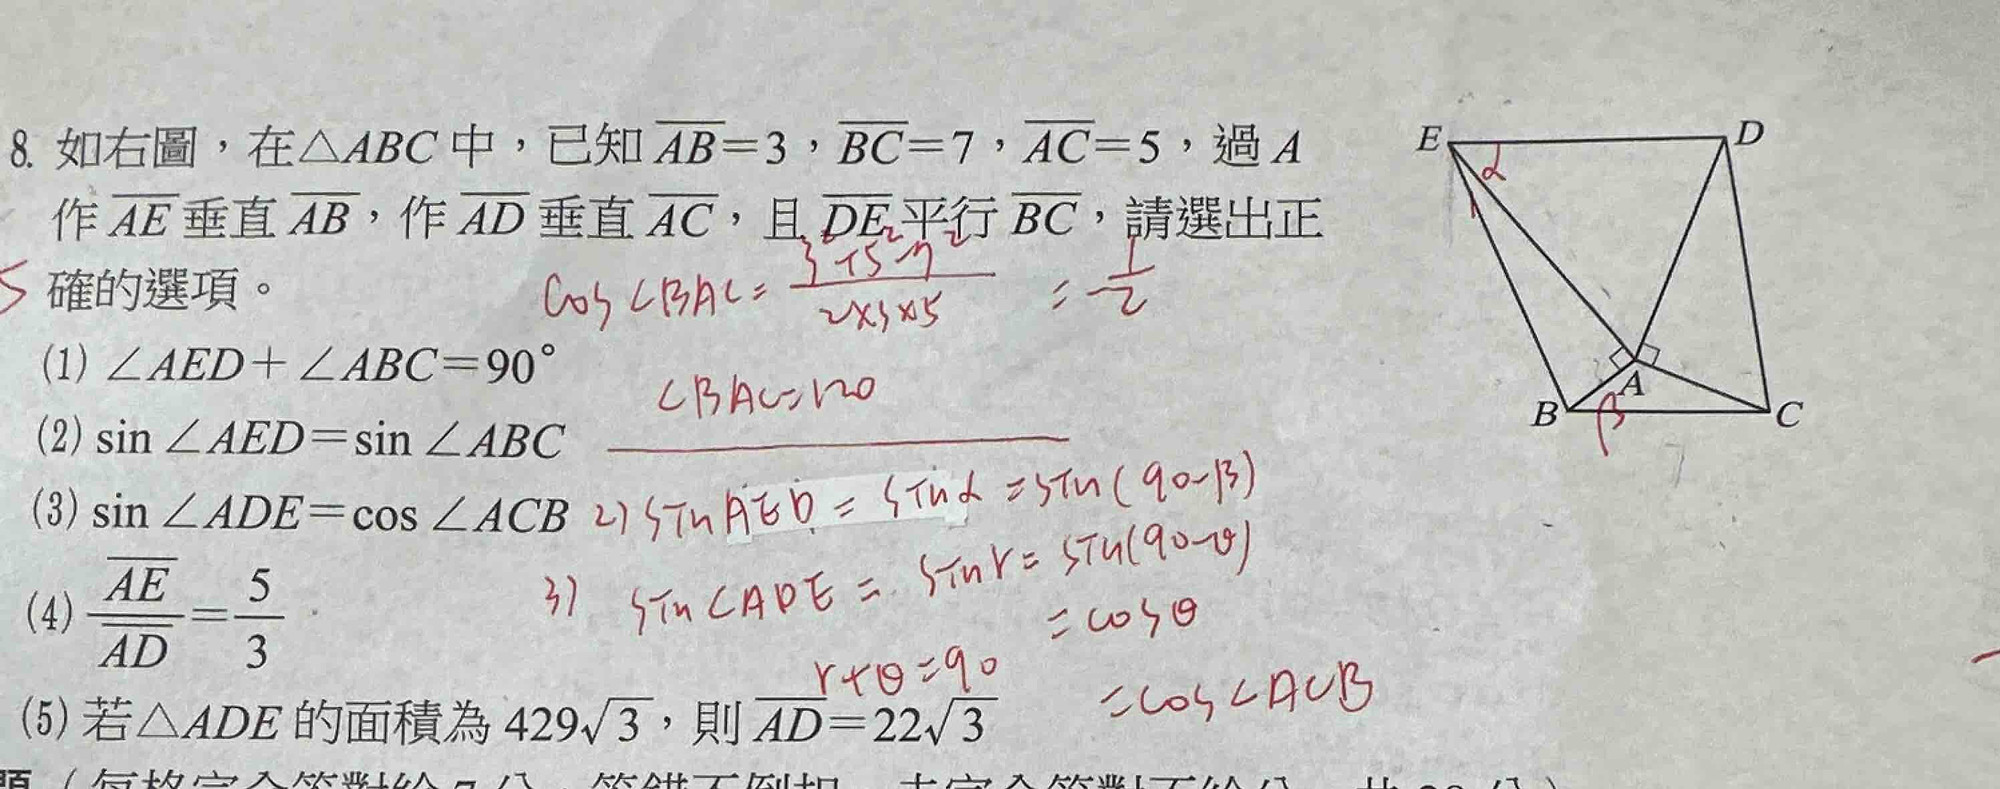 8. 如右圖，在△ABC 中，已知 AB=3，BC=7，AC=5，過 A
作 AE 垂直 AB，作 AD 垂直 AC，且 DE 平行 BC，請選出正
確的選項。
cos∠BAC= 3²+5²-7² / 2×3×5 = -1/2
(1) ∠AED+∠ABC=90°
∠BAC=120
(2) sin ∠AED=sin ∠ABC
(3) sin ∠ADE=cos ∠ACB
2) sin AED = sin α = sin(90-β)
3) sin∠ADE = sin r = sin(90-θ)
= cos θ
(4) AE/AD = 5/3
r+θ=90
= cos∠ACB
(5) 若△ADE 的面積為 429√3，則 AD=22√3
E
D
α
A
B
β
C